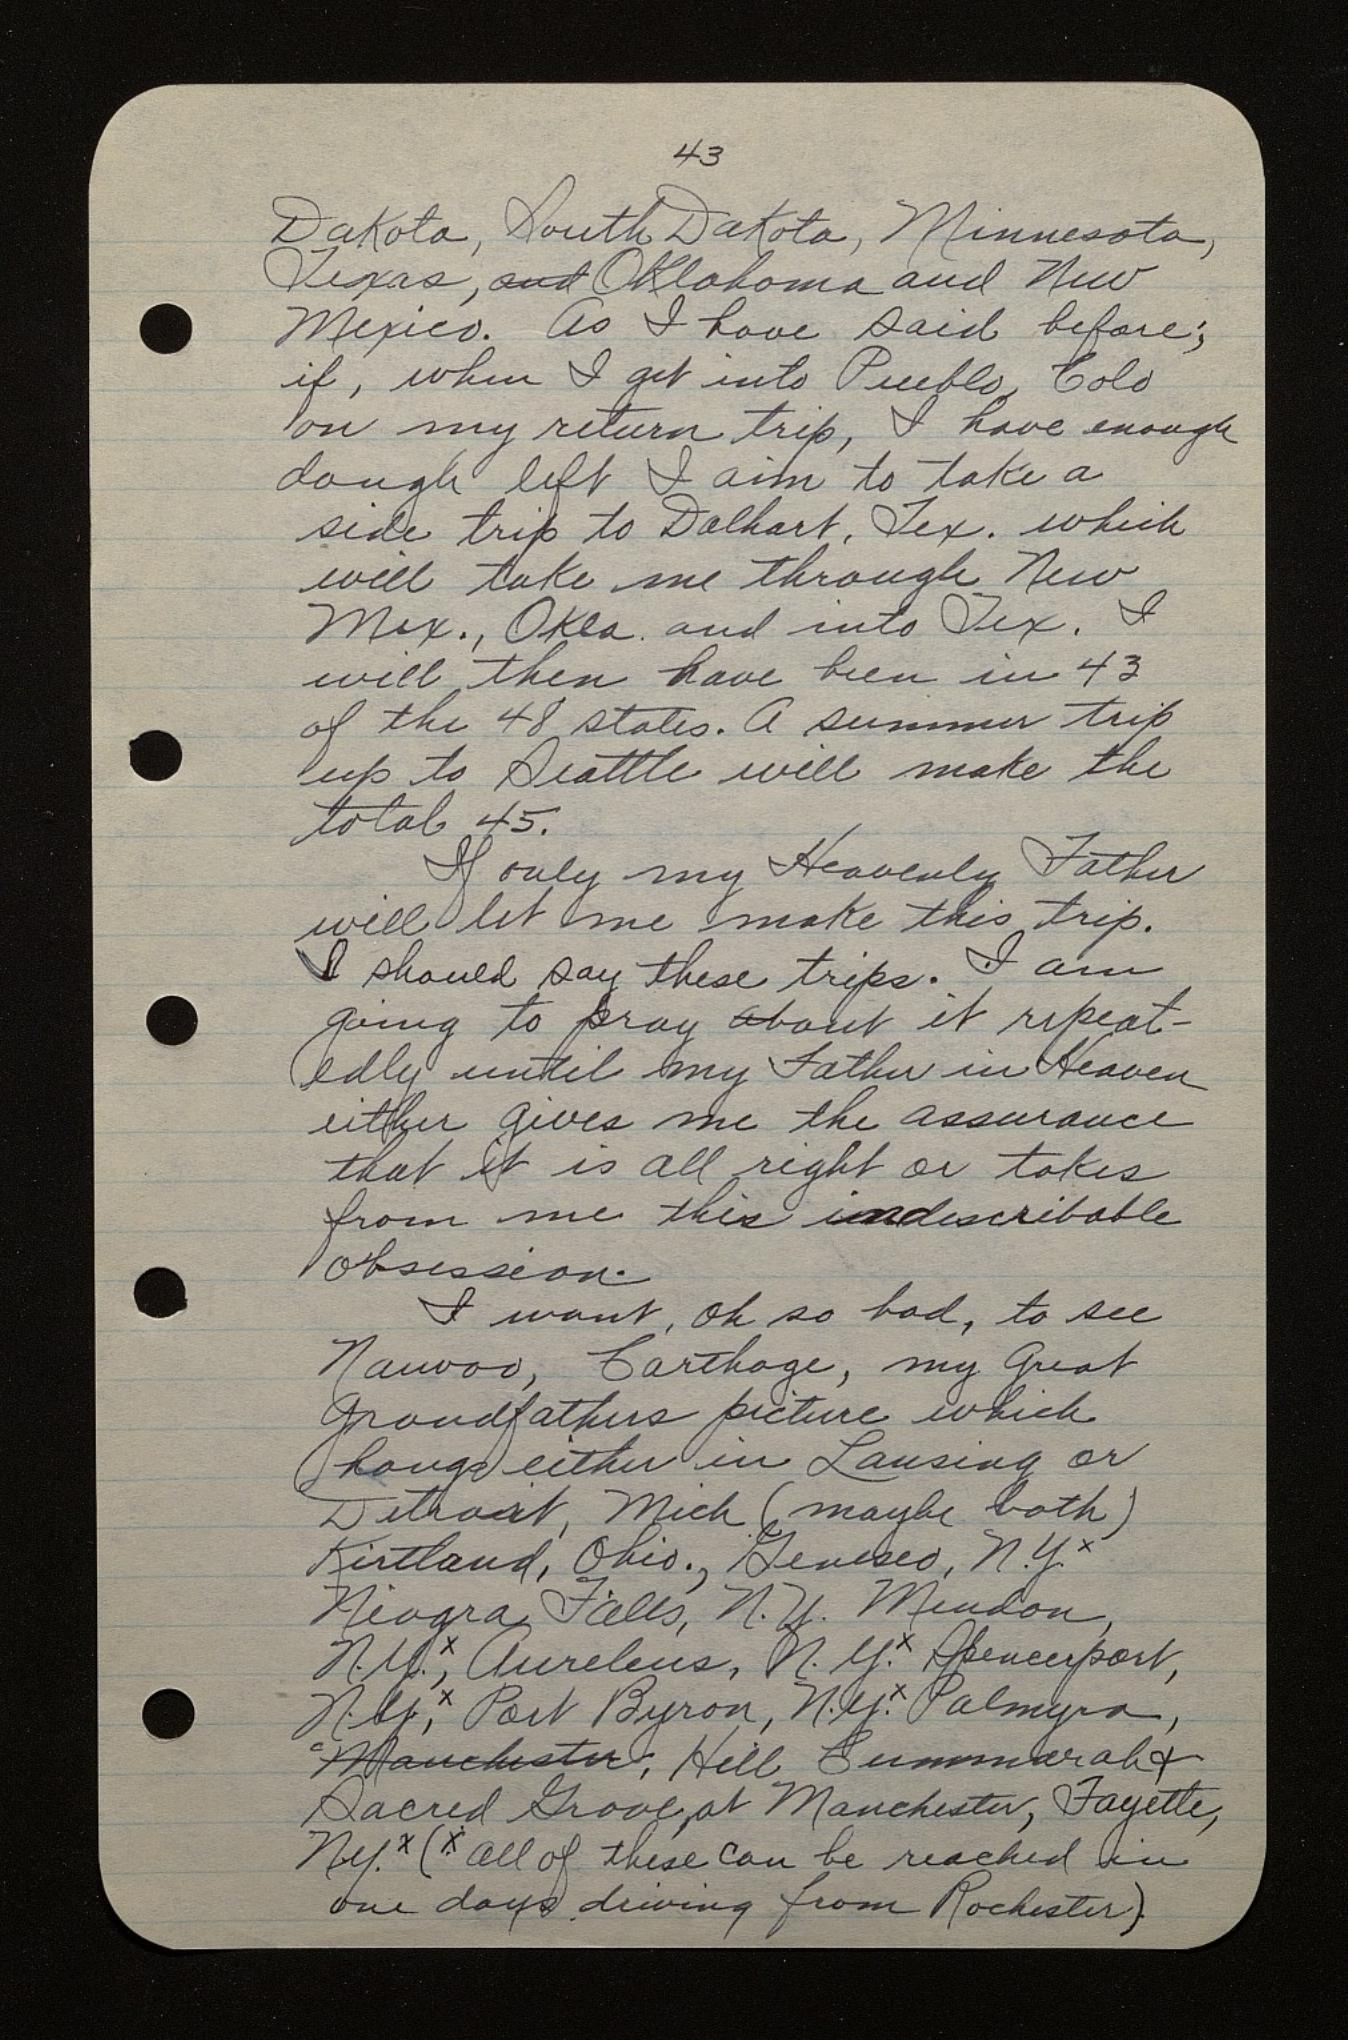 43
Dakota, South Dakota, Minnesota,
Texas, and Oklahoma and New
Mexico. As I have said before;
if, when I get into Pueblo, Colo
on my return trip, I have enough
dough left I aim to take a
side trip to Dalhart, Tex. which
will take me through New
Mex., Okla. and into Tex. I
will then have been in 43
of the 48 states. A summer trip
up to Seattle will make the
total 45.
If only my Heavenly Father
will let me make this trip.
I should say these trips. I am
going to pray about it repeat-
edly until my Father in Heaven
either gives me the assurance
that it is all right or takes
from me this indescribable
obsession.
I want, oh so bad, to see
Nauvoo, Carthage, my Great
Grandfathers picture which
hangs either in Lansing or
Detroit, Mich (maybe both)
Kirtland, Ohio., Geneseo, N.Y.x
Niagra Falls, N.Y. Mendon,
N.Y.x, Aureleus, N.Y.x Spencerport,
N.Y,x Port Byron, N.Y.x Palmyra,
Manchester, Hill Cummorah &
Sacred Grove, at Manchester, Fayette,
NY.x (x. all of these can be reached in
one days driving from Rochester)